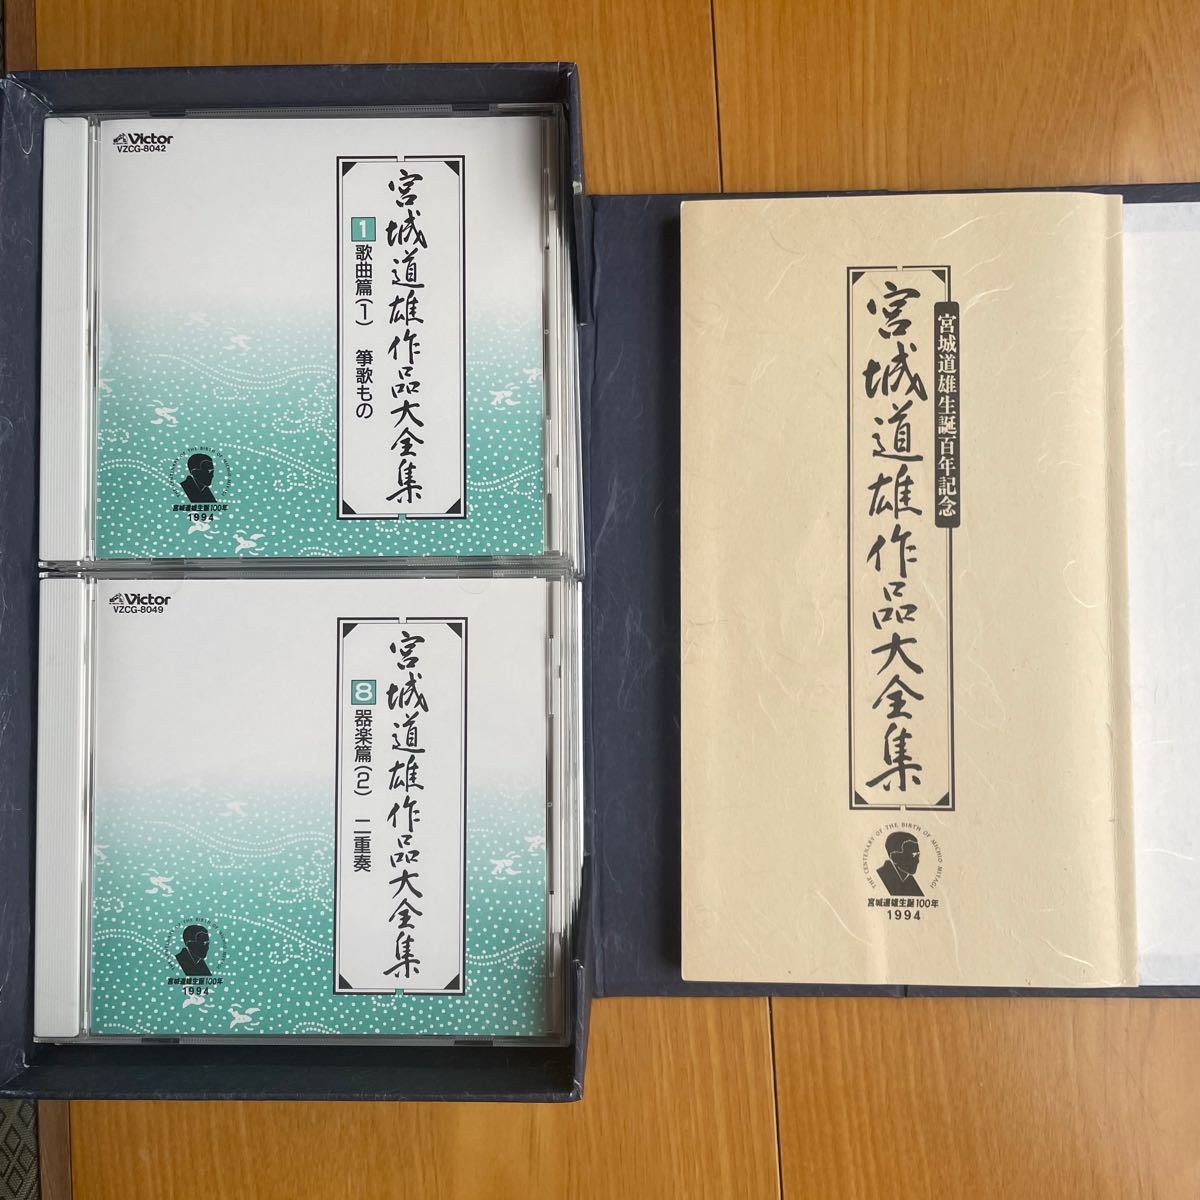 Victor
VZCG-8042
宮城道雄作品大全集
1 歌曲篇(1) 箏歌もの
THE CENTENARY OF THE BIRTH OF MICHIO MIYAGI
宮城道雄生誕100年
1994
Victor
VZCG-8049
宮城道雄作品大全集
8 器楽篇(2) 二重奏
THE CENTENARY OF THE BIRTH OF MICHIO MIYAGI
宮城道雄生誕100年
1994
宮城道雄生誕百年記念
宮城道雄作品大全集
THE CENTENARY OF THE BIRTH OF MICHIO MIYAGI
宮城道雄生誕100年
1994